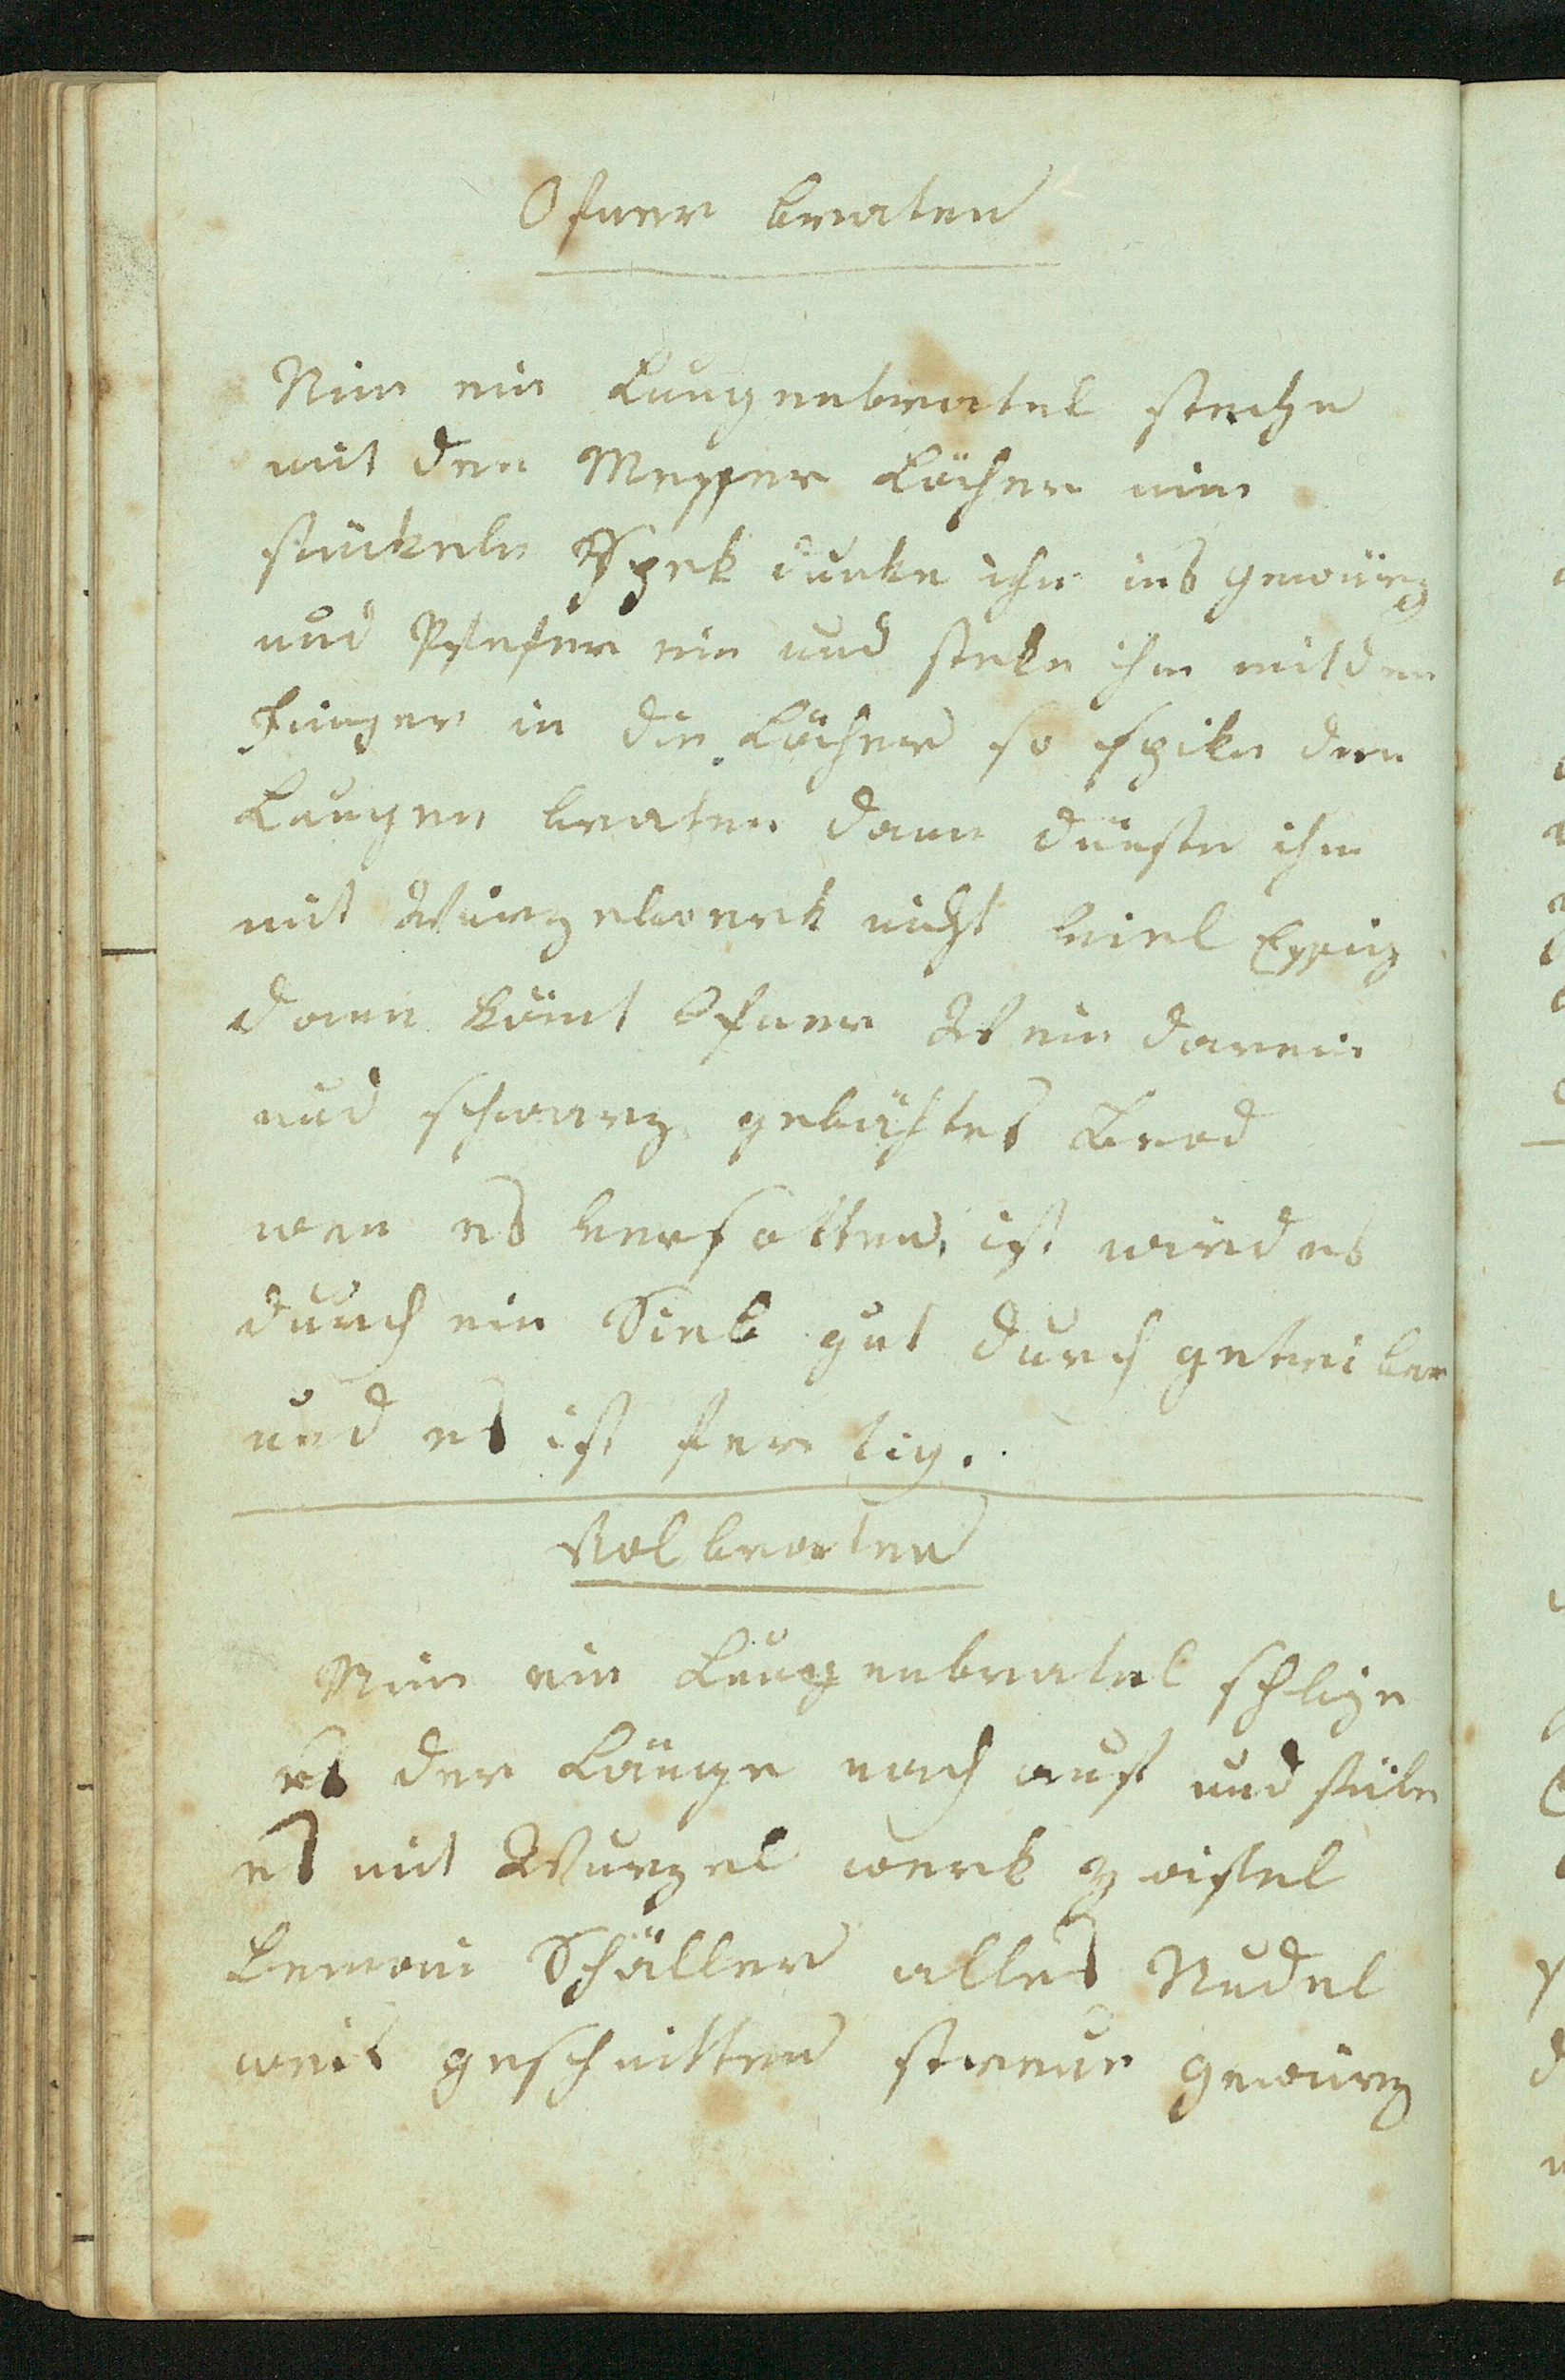 Ofner braten
Nim ein Lungenbratel steche
mit den Messer Löcher nim
stückeln Spek dunke ihn ins gewürz
und Pfefer ein und steke ihn mit den
Finger in die Löcher so spike den
Lungen braten dann dünste ihn
mit Würzelwerk nicht viel Essig
dann kömt Ofner Wein darein
und schwarz gebähtes Brod
wen es versotten ist wird es
durch ein Sieb gut durch getrieben
und es ist fer tig.
Rol braten
Nim ein Lungenbratel schlige
es der Länge nach auf und füle
es mit Wurzel werk zwifel
Lemoni Schäller alles Nudel
weis geschnitten streue gewürz